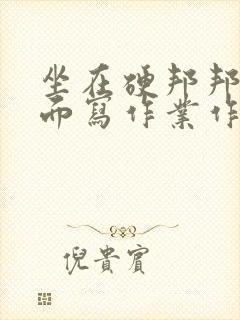 坐在硬邦邦
而寫作業作
倪貴賓